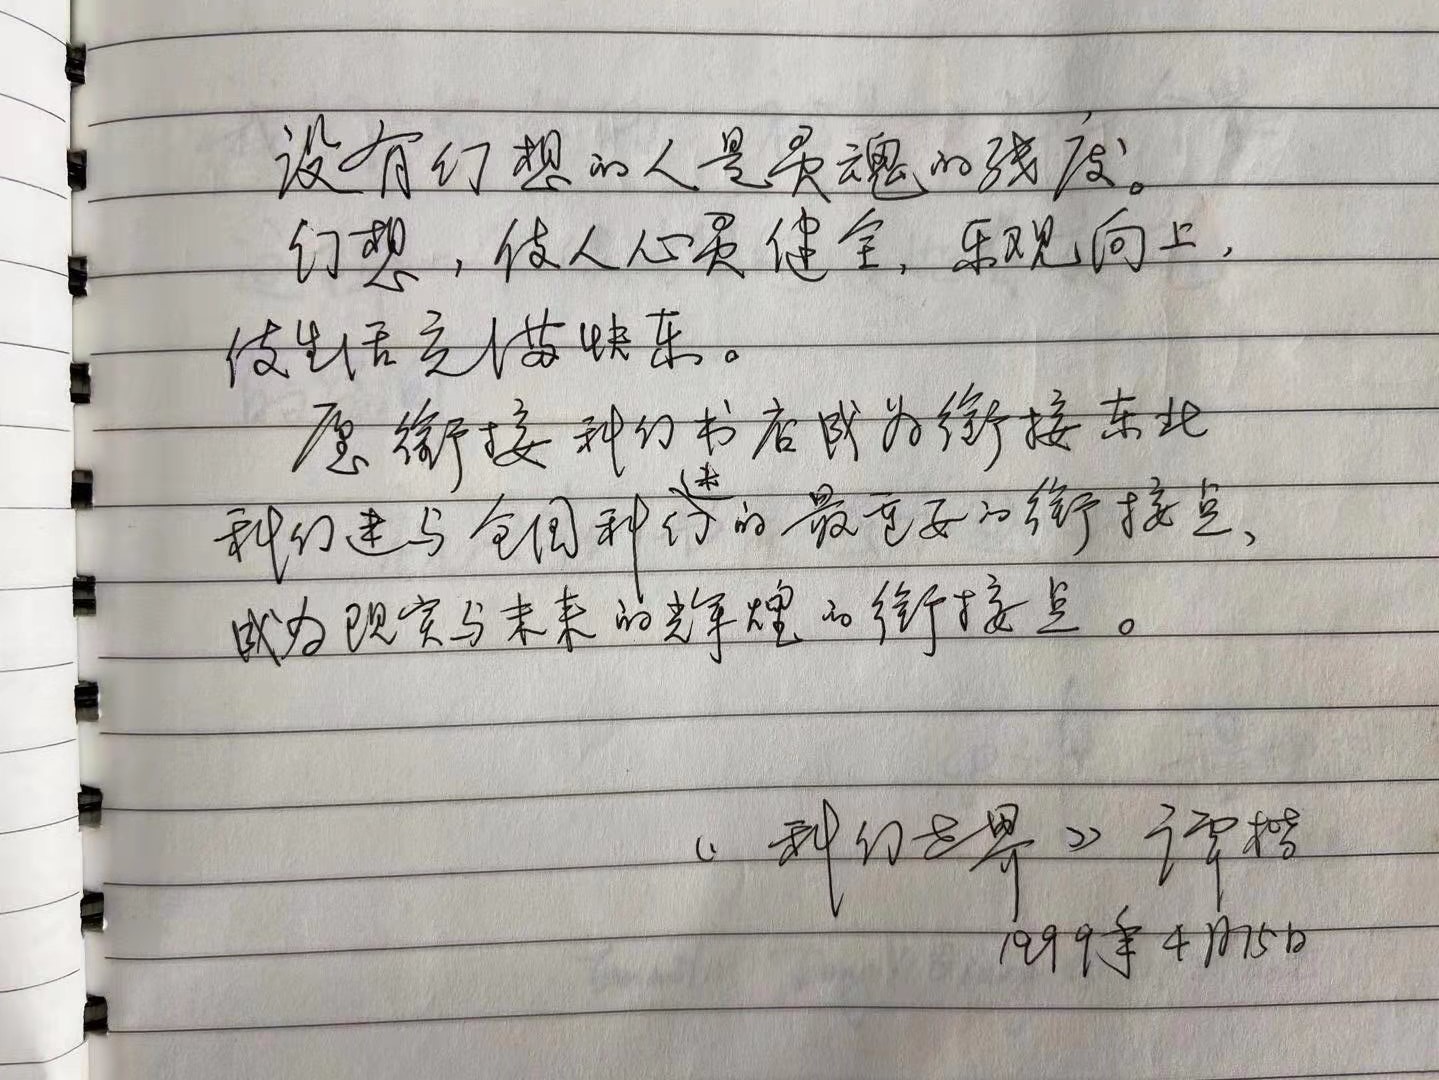 没有幻想的人是灵魂的残废。
幻想，使人心灵健全，乐观向上，
使生活充满快乐。
愿衔接科幻书店成为衔接东北
科幻迷与全国科幻迷的最重要的衔接点、
成为现实与未来的辉煌的衔接点。
《科幻世界》谭楷
1999年4月15日